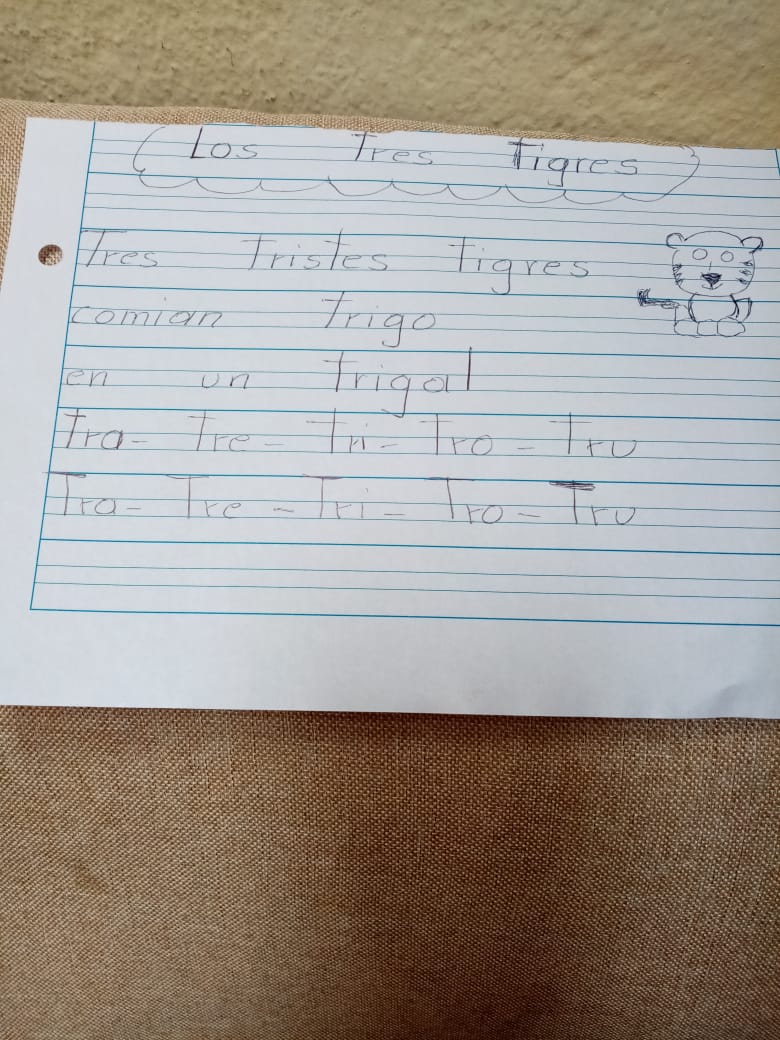 Los Tres Tigres
Tres Tristes Tigres
comian Trigo
en un Trigal
Tra- Tre - Tri - Tro - Tru
Tra- Tre - Tri - Tro - Tru